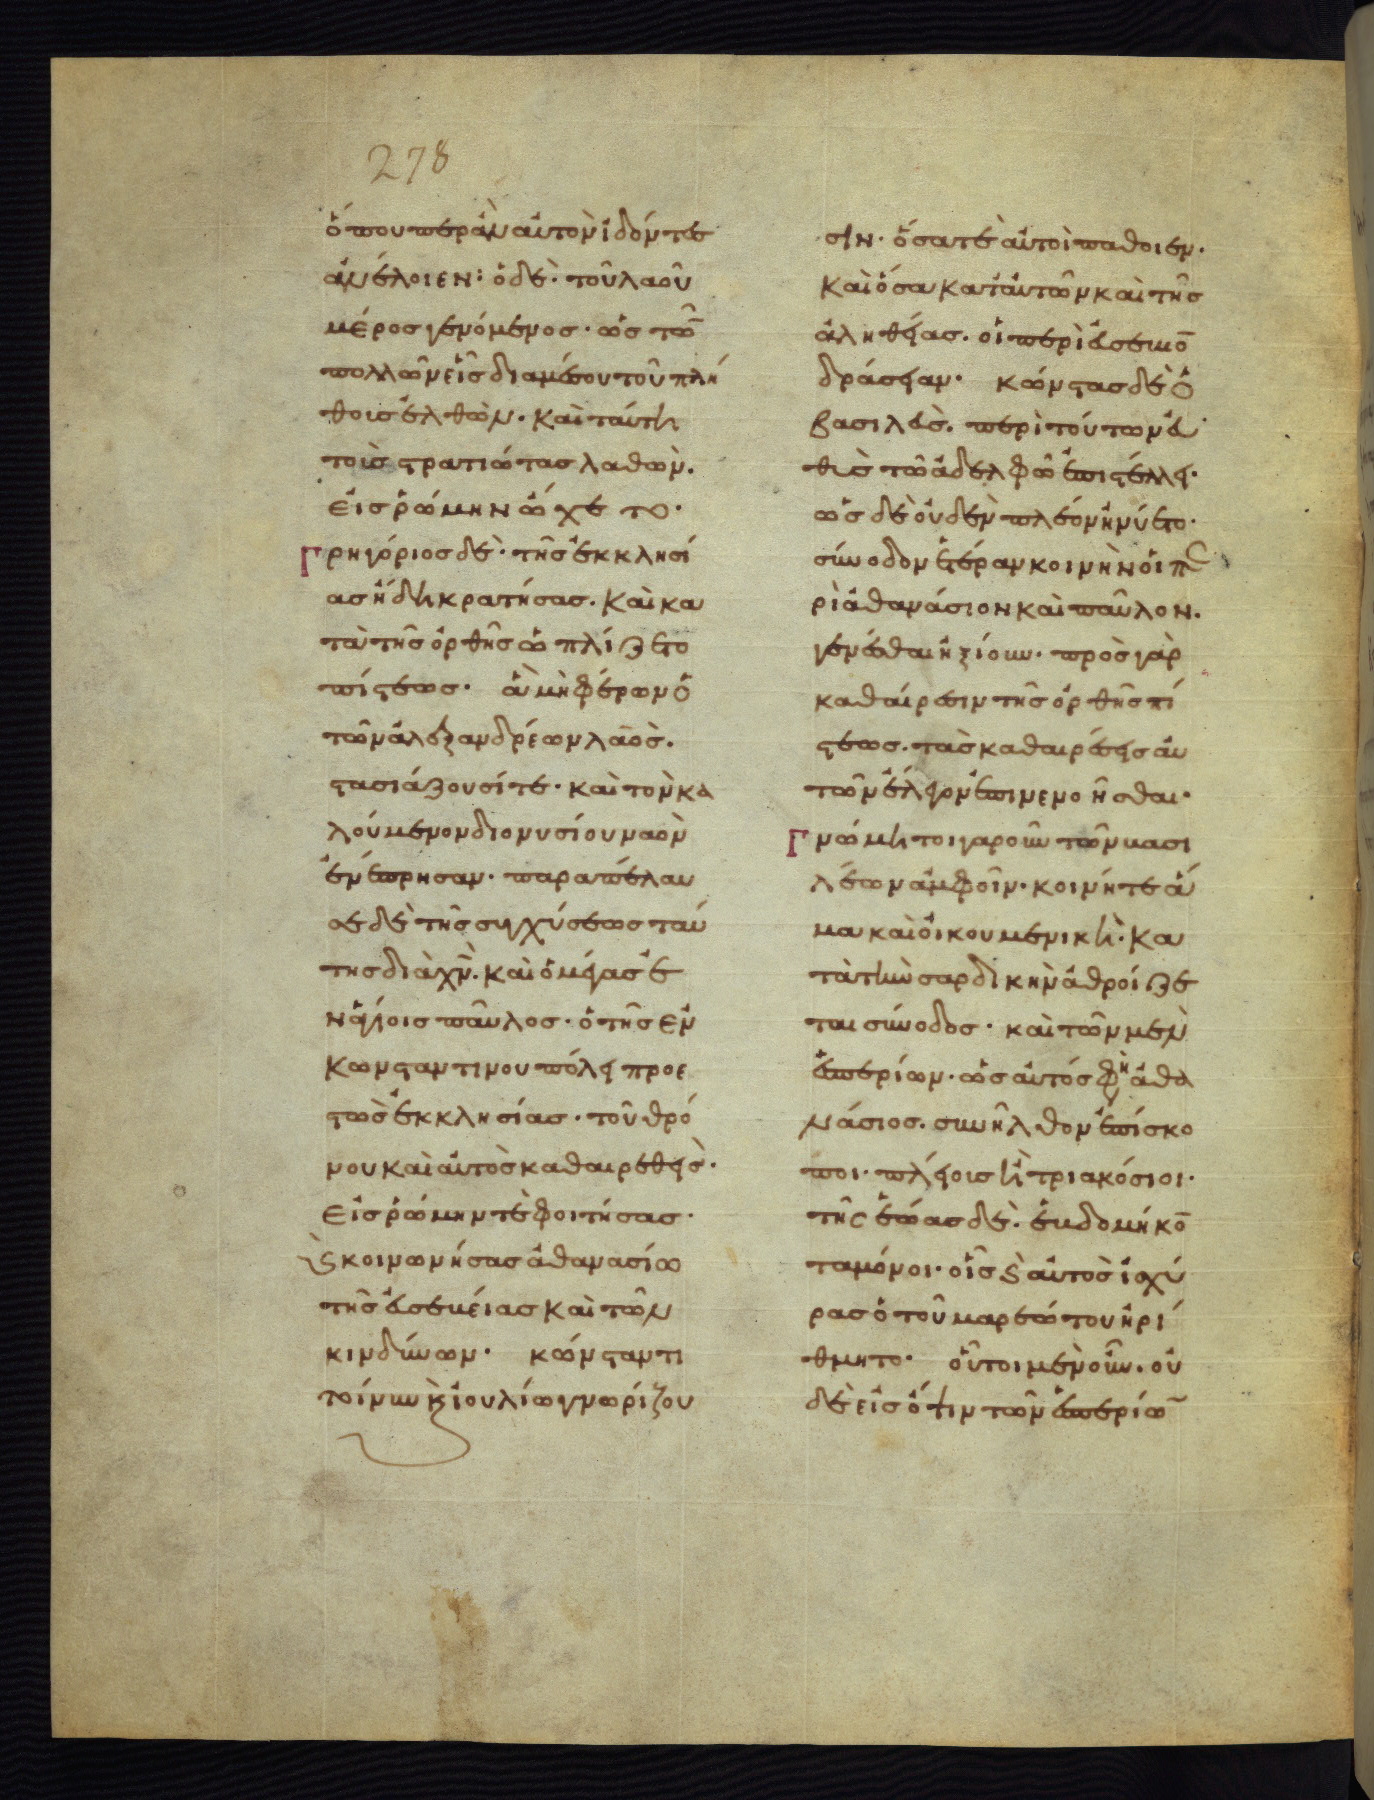 278
ὅπου περ ἂν αὐτὸν ἰδόντες
ἀνέλοιεν: ὁ δὲ· τοῦ λαοῦ
μέρος γενόμενος· ὡς τῶ̅
πολλῶν εἷς διαμέσου τοῦ πλή
θους ἐλθὼν· καὶ ταύτη
τοὺς στρατιώτας λαθὼν.
εἰς ῥώμην ᾤχετο·
Γρηγόριος δὲ· τῆς ἐκκλησί
ας ἤδη κρατήσας. καὶ κα
τὰ τῆς ὀρθῆς ὡπλίζετο
πίστεως. ἃ μὴ φέρων ὁ
τῶν ἀλεξανδρέων λαὸς.
στασιάζουσί τε· καὶ τὸν κα
λούμενον διονυσίου ναὸν
ἐνέπρησαν· παραπέλαυ
σε δὲ τῆς συγχύσεως ταύ
της διὰ χ̅ν̅. καὶ ὁ μέγας ἐ
ν ἁγίοις παῦλος· ὁ τῆς ἐν
κωνσταντινουπόλει προε
στὼς ἐκκλησίας· τοῦ θρό
νου καὶ αὐτὸς καθαιρεθεὶς·
εἰς ῥώμην τὲ φοιτήσας·
ϗ κοινωνήσας ἀθανασίω
τῆς εὐσεβείας καὶ τῶν
κινδύνων· κώνσταντι
τοίνυν ϗ ἰουλίω γνωρίζου
σιν· ὅσα τὲ αὐτοὶ πάθοιεν·
καὶ ὅσα κατ' αὐτῶν καὶ τῆς
ἀληθείας. οἱ περὶ εὐσέβιο̅
δράσειαν· κώνστας δὲ ὁ
βασιλεὺς. περὶ τούτων εὐ
θὺς τῶ ἀδελφῶ ἐπιστέλλει·
ὡς δὲ οὐδὲν πλέον ἠνύετο·
σύνοδον ἑτέραν κοινὴν οἱ πε
ρὶ ἀθανάσιον καὶ παῦλον.
γενέσθαι ἠξίουν· πρὸς γὰρ
καθαίρεσιν τῆς ὀρθῆς πί
στεως. τὰς καθαιρέσεις αὐ
τῶν ἔλεγον ἐπινενοῆσθαι·
Γνώμη τοιγαροῦν τῶν βασι
λέων ἀμφοῖν· κοινή τε ἅ
μα καὶ οἰκουμενικὴ· κα
τὰ τὴν σαρδικὴν ἀθροίζε
ται σύνοδος· καὶ τῶν μὲν
ἑσπερίων· ὡς αὐτός φὴ ἀθα
νάσιος. συνῆλθον ἐπίσκο
ποι· πλείους ἢ τριακόσιοι·
τῆς ἑώας δὲ. ἑβδομήκο̅
τα μόνοι· οἷς ϗ αὐτὸς ἰσχύ
ρας ὁ τοῦ μαρεώτου ἠρί
θμητο· οὗτοι μὲν οὖν. οὐ
δὲ εἰς ὄψιν τῶν ἑσπερίω̅